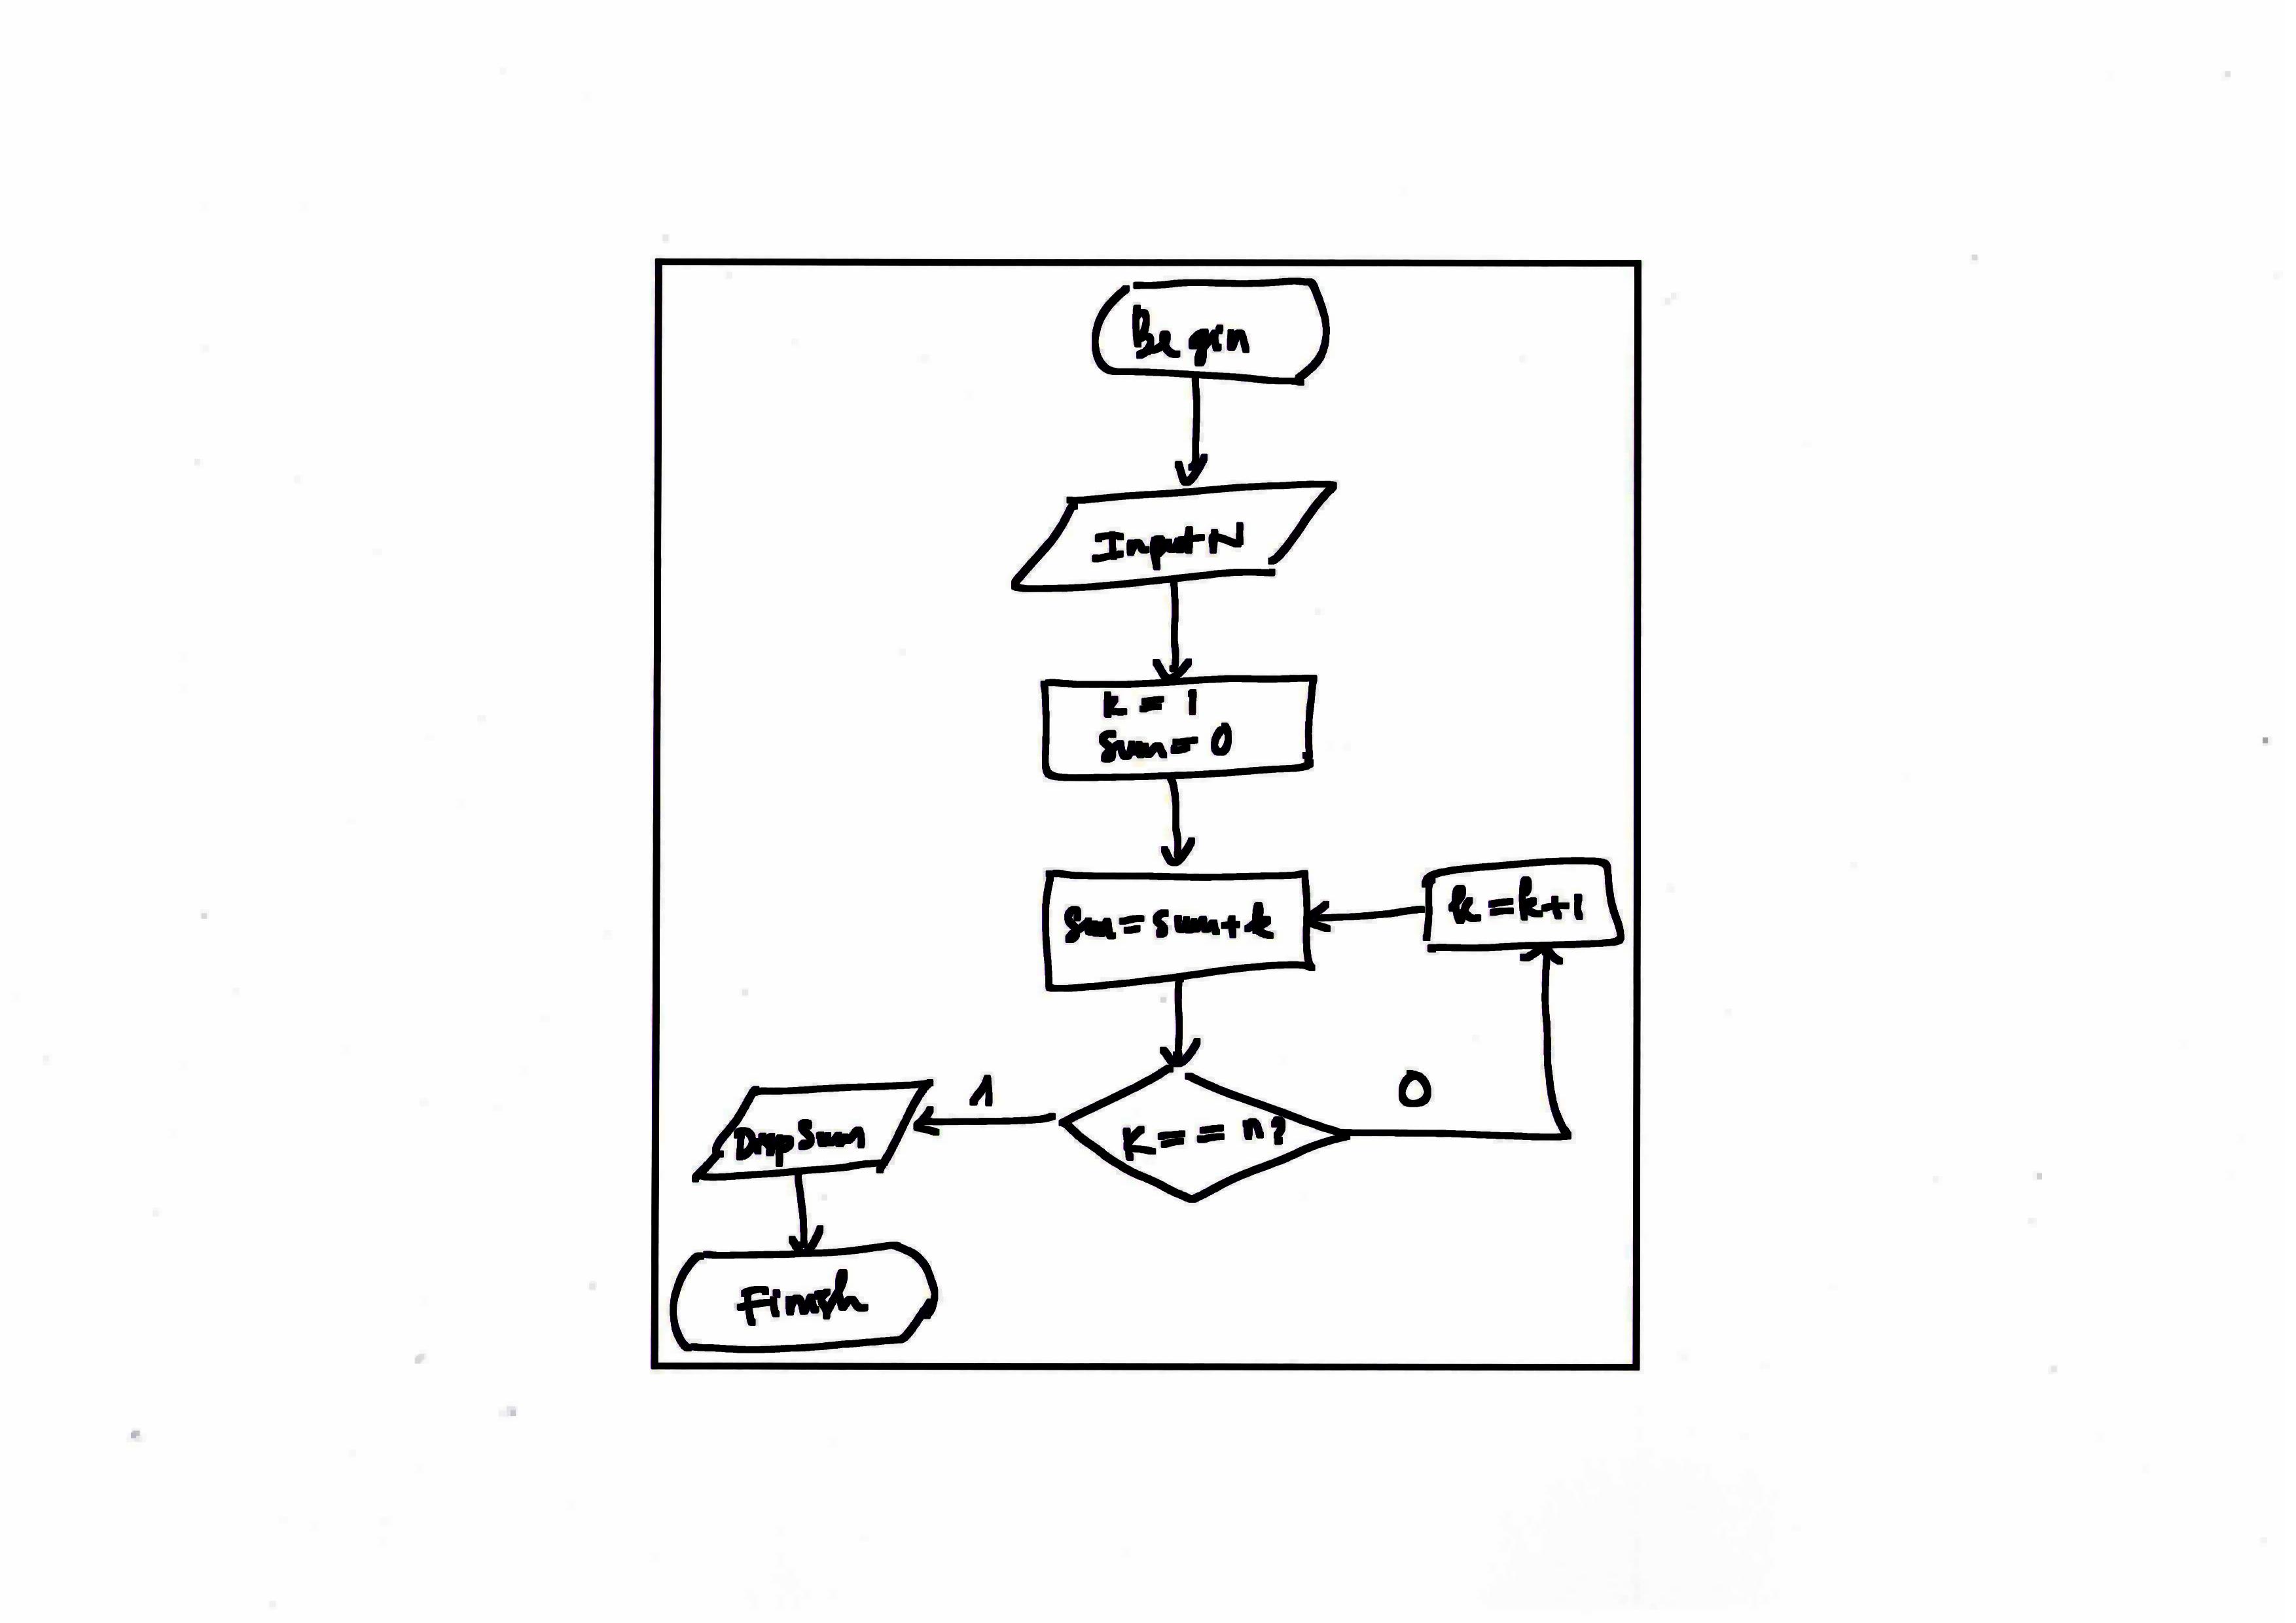 Begin
Input N
k = 1
Sum = 0
Sum = sum + k
k = k + 1
K = = n?
1
0
Disp Sum
Finish